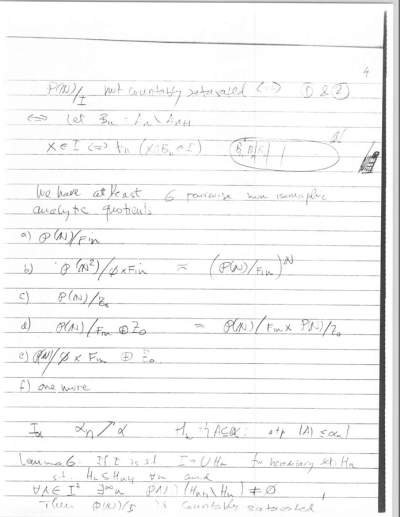 4
P(N)/I not countably saturated <=> ① & ②
<=> Let Bn = An \ An+1
X ∈ I <=> ∀n (X ∩ Bn ∈ I)
We have at least 6 pairwise non isomorphic
analytic quotients
a) P(N)/Fin
b) P(N²)/∅×Fin ≈ (P(N)/Fin)^N
c) P(N)/Z₀
d) P(N)/Fin ⊕ Z₀ = P(N)/Fin × P(N)/Z₀
e) P(N)/∅ × Fin ⊕ Z₀
f) one more
Iα αn ↗ α Hn = {A ⊆ α : otp (A) ≤ αn}
Lemma 6 If I is s.t. I = ∪Hn for hereditary sets Hn
s.t. Hn ⊆ Hn+1 ∀n and
∀A ∈ I⁺ ∃^∞ n P(A) ∩ (Hn+1 \ Hn) ≠ ∅,
Then P(N)/I is countably saturated